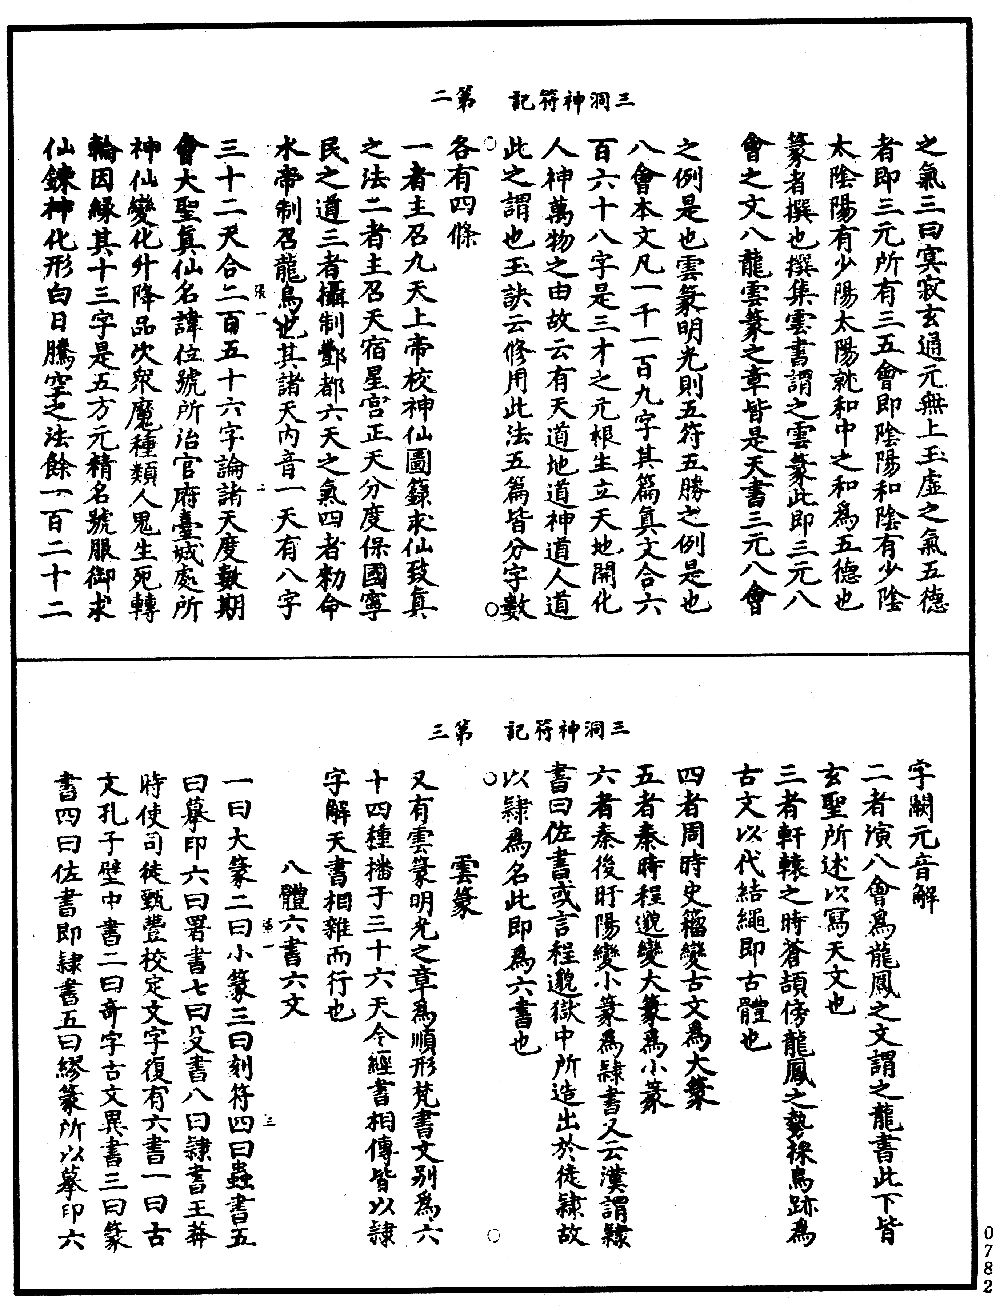 三洞神符記　第二
之氣三曰寘寂玄通元無上玉虛之氣五德
者即三元所有三五會即陰陽和陰有少陰
太陰陽有少陽太陽就和中之和為五德也
篆者撰也撰集雲書謂之雲篆此即三元八
會之文八龍雲篆之章皆是天書三元八會
之例是也雲篆明光則五符五勝之例是也
八會本文凡一千一百九字其篇真文合六
百六十八字是三才之元根生立天地開化
人神萬物之由故云有天道地道神道人道
此之謂也玉訣云修用此法五篇皆分字數
各有四條
一者主召九天上帝校神仙圖籙求仙致真
之法二者主召天宿星宮正天分度保國寧
民之道三者攝制酆都六天之氣四者勑命
水帝制召龍鳥也其諸天內音一天有八字
三十二天合二百五十六字論諸天度數期
會大聖真仙名諱位號所治官府臺城處所
神仙變化升降品次眾魔種類人鬼生死轉
輪因緣其十三字是五方元精名號服御求
仙鍊神化形白日騰空之法餘一百二十二
張一
二
三洞神符記　第三
字闕元音解
二者演八會為龍鳳之文謂之龍書此下皆
玄聖所述以寫天文也
三者軒轅之時蒼頡傍龍鳳之勢採鳥跡為
古文以代結繩即古體也
四者周時史籀變古文為大篆
五者秦時程邈變大篆為小篆
六者秦後旴陽變小篆為隸書又云漢謂隸
書曰佐書或言程邈獄中所造出於徒隸故
以隸為名此即為六書也
雲篆
又有雲篆明光之章為順形梵書文別為六
十四種播于三十六天今經書相傳皆以隸
字解天書相雜而行也
八體六書六文
一曰大篆二曰小篆三曰刻符四曰蟲書五
曰摹印六曰署書七曰殳書八曰隸書王莽
時使司徒甄豐校定文字復有六書一曰古
文孔子壁中書二曰奇字古文異書三曰篆
書四曰佐書即隸書五曰繆篆所以摹印六
張一
三
0782